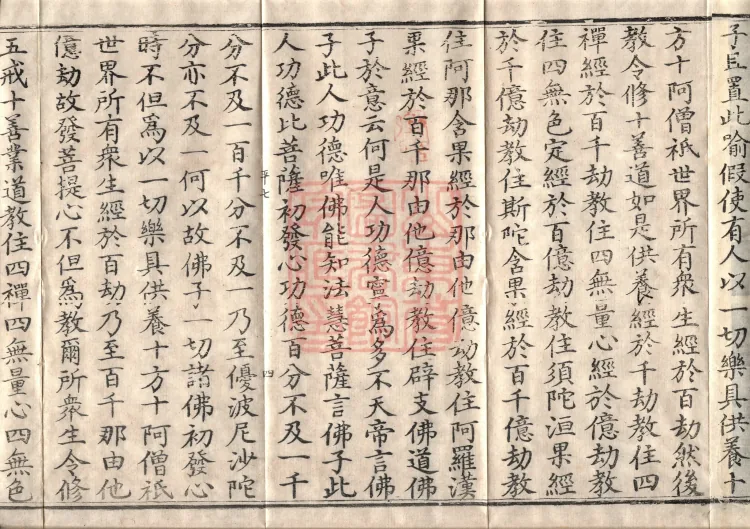 子且置此喻假使有人以一切樂具供養十
方十阿僧祇世界所有衆生經於百劫然後
教令修十善道如是供養經於千劫教住四
禪經於百千劫教住四無量心經於億劫教
住四無色定經於百億劫教住須陀洹果經
於千億劫教住斯陀含果經於百千億劫教
住阿那含果經於那由他億劫教住阿羅漢
果經於百千那由他億劫教住辟支佛道佛
子於意云何是人功德寧爲多不天帝言佛
子此人功德唯佛能知法慧菩薩言佛子此
人功德比菩薩初發心功德百分不及一千
平七 四
分不及一百千分不及一乃至優波尼沙陀
分亦不及一何以故佛子一切諸佛初發心
時不但爲以一切樂具供養十方十阿僧祇
世界所有衆生經於百劫乃至百千那由他
億劫故發菩提心不但爲教爾所衆生令修
五戒十善業道教住四禪四無量心四無色